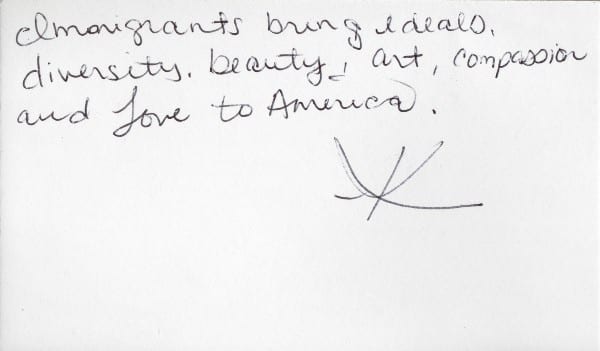 Immigrants bring ideals,
diversity, beauty, art, compassion
and love to America.